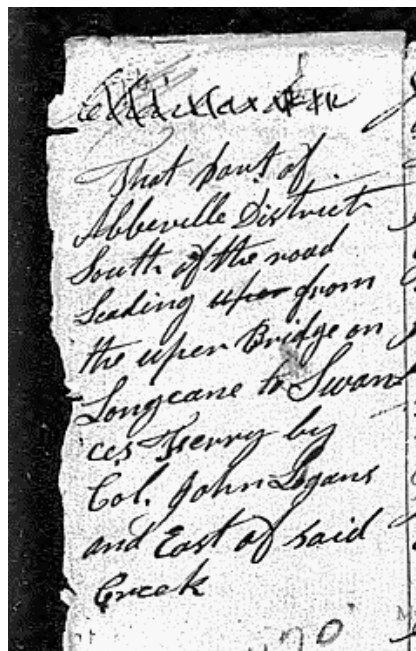 That part of
Abbeville District
South of the road
Leading uper from
the uper Bridge on
Longcane to Swan
ces Ferry by
Col. John Logans
and East of said
Creek